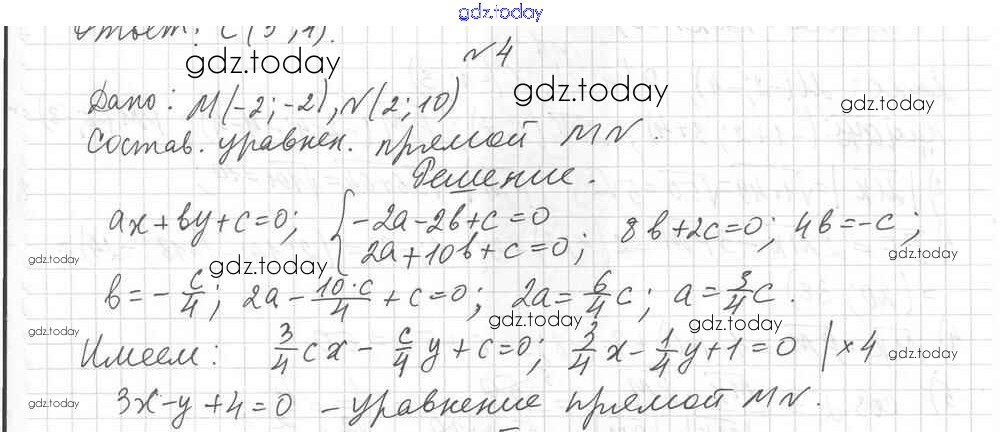 gdz.today
Ответ: C(5;1).
№4
gdz.today
Дано: M(-2;-2), N(2;10)
gdz.today
gdz.today
Состав. уравнен. прямой MN.
Решение.
ax+by+c=0; { -2a-2b+c=0
2a+10b+c=0; 8b+2c=0; 4b=-c;
gdz.today
gdz.today
gdz.today
b=-c/4; 2a-10·c/4+c=0; 2a=6/4c; a=3/4c.
gdz.today
gdz.today
gdz.today
gdz.today
Имеем: 3/4cx-c/4y+c=0; 3/4x-1/4y+1=0 |×4
3x-y+4=0 - уравнение прямой MN.
gdz.today
gdz.today